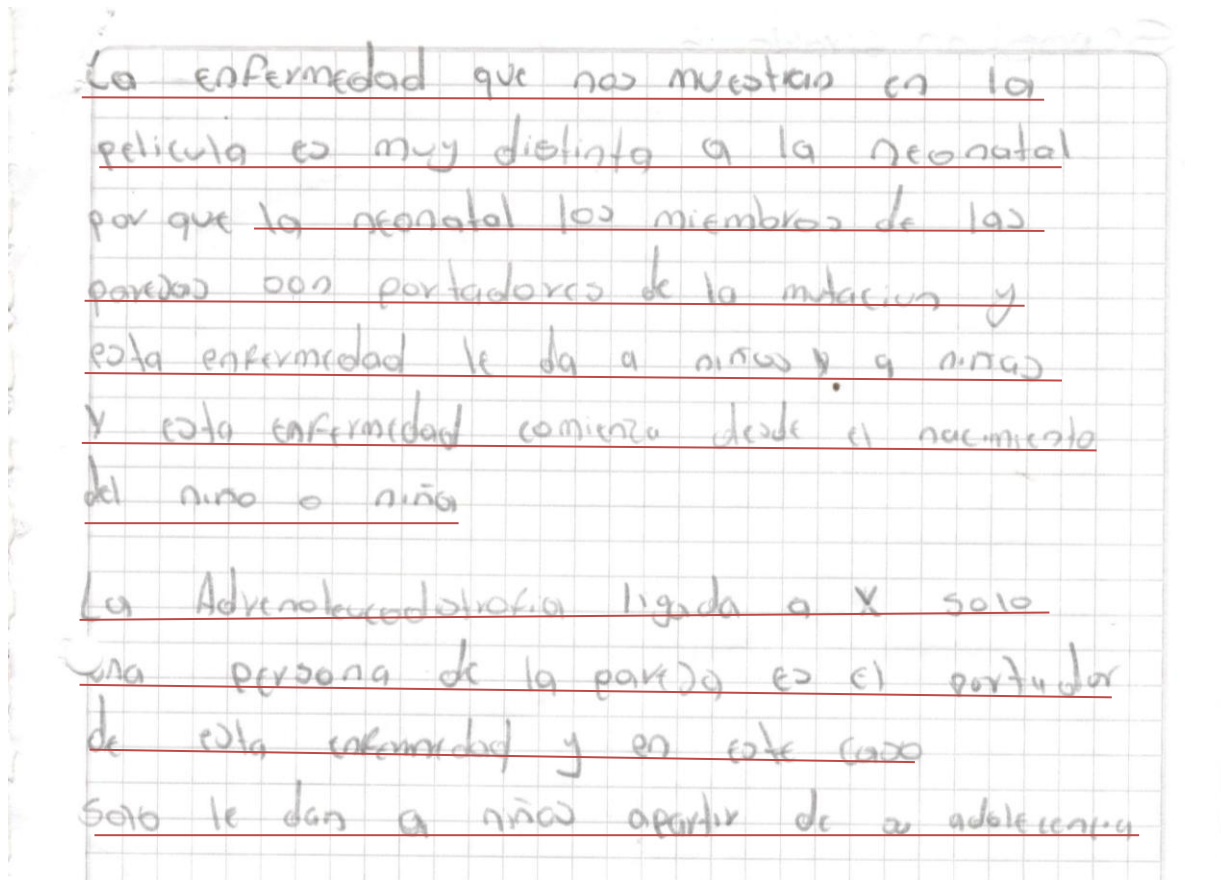 La enfermedad que nos muestran en la
pelicula es muy distinta a la neonatal
por que la neonatal los miembros de las
parejas son portadores de la mutacion y
esta enfermedad le da a niños y a niñas
y esta enfermedad comienza desde el nacimiento
del niño o niña
La Adrenoleucodistrofia ligada a X solo
una persona de la pareja es el portador
de esta enfermedad y en este caso
solo le dan a niños apartir de adolecencia